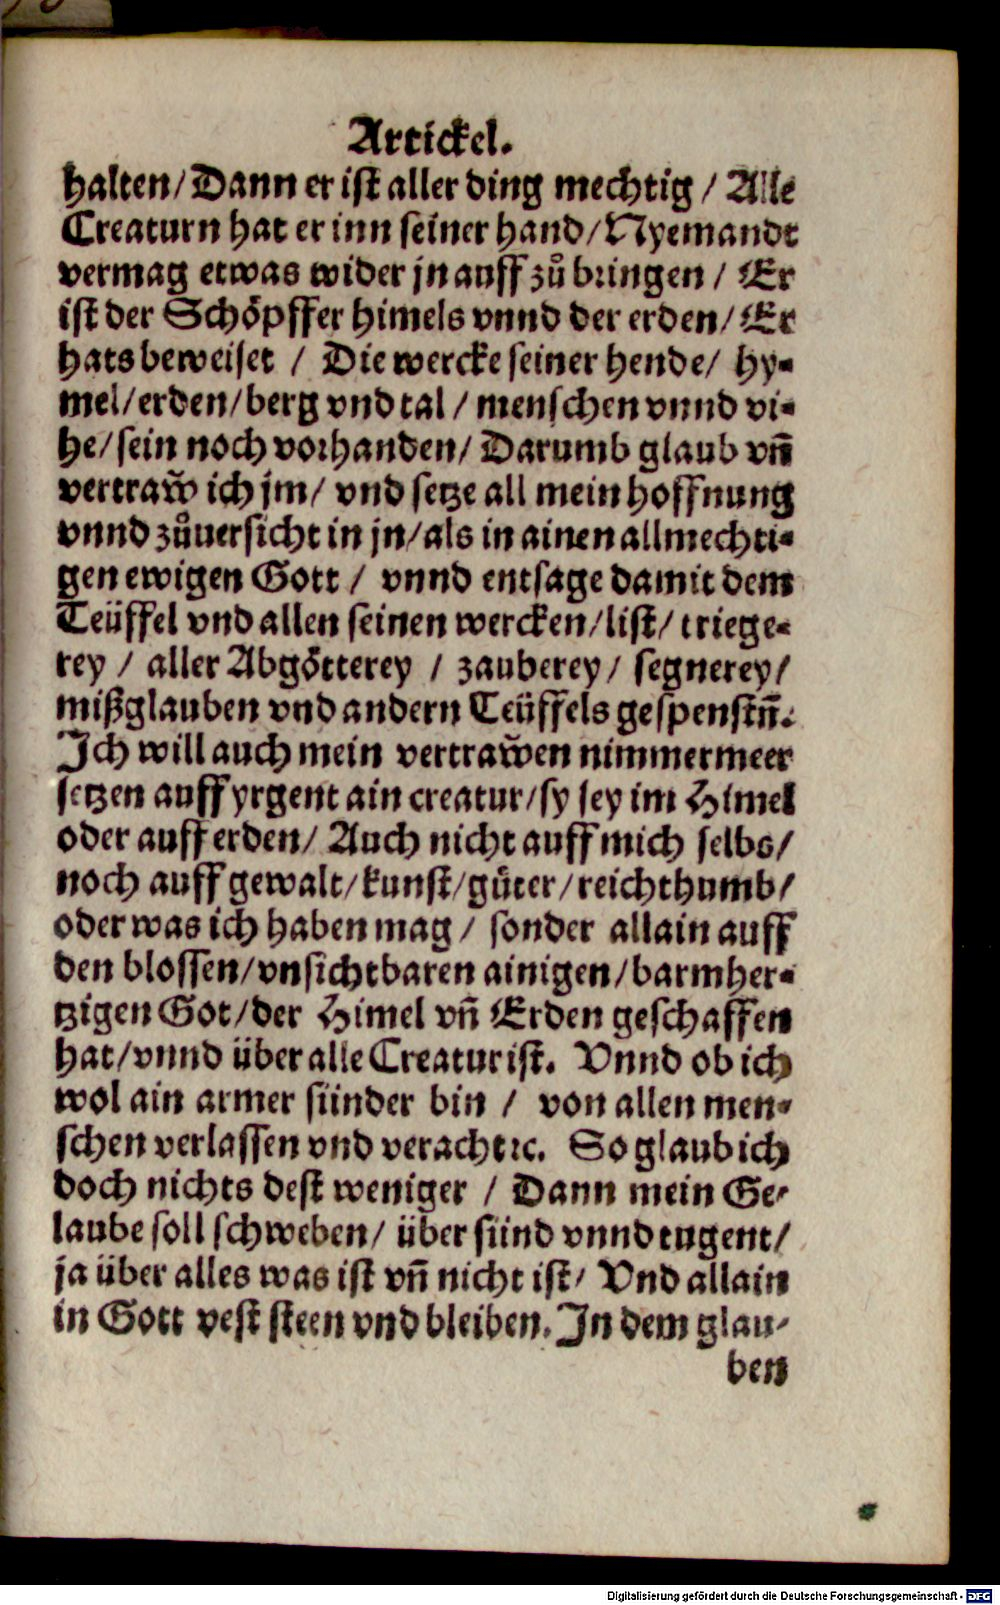 Artickel.
halten/ Dann er ist aller ding mechtig / Alle
Creaturn hat er inn seiner hand/ Nyemandt
vermag etwas wider jn auff zů bringen / Er
ist der Schöpffer himels vnnd der erden/ Er
hats beweiset / Die wercke seiner hende/ hy-
mel/ erden/ berg vnd tal / menschen vnnd vi-
he/ sein noch vorhanden/ Darumb glaub vñ
vertraw̃ ich jm/ vnd setze all mein hoffnung
vnnd zůuersicht in jn/ als in ainen allmechti-
gen ewigen Gott / vnnd entsage damit dem
Teüffel vnd allen seinen wercken/ list/ triege-
rey / aller Abgötterey / zauberey/ segnerey/
mißglauben vnd andern Teüffels gespenstñ.
Ich will auch mein vertraw̃en nimmermeer
setzen auff yrgent ain creatur/ sy sey im Himel
oder auff erden/ Auch nicht auff mich selbs/
noch auff gewalt/ kunst/ güter/ reichthumb/
oder was ich haben mag / sonder allain auff
den blossen/ vnsichtbaren ainigen/ barmher-
tzigen Got/ der Himel vñ Erden geschaffen
hat/ vnnd über alle Creatur ist. Vnnd ob ich
wol ain armer sünder bin / von allen men-
schen verlassen vnd veracht ꝛc. So glaub ich
doch nichts dest weniger / Dann mein Ge-
laube soll schweben/ über sünd vnnd tugent/
ja über alles was ist vñ nicht ist/ Vnd allain
in Gott vest steen vnd bleiben. In dem glau-
ben
Digitalisierung gefördert durch die Deutsche Forschungsgemeinschaft - DFG